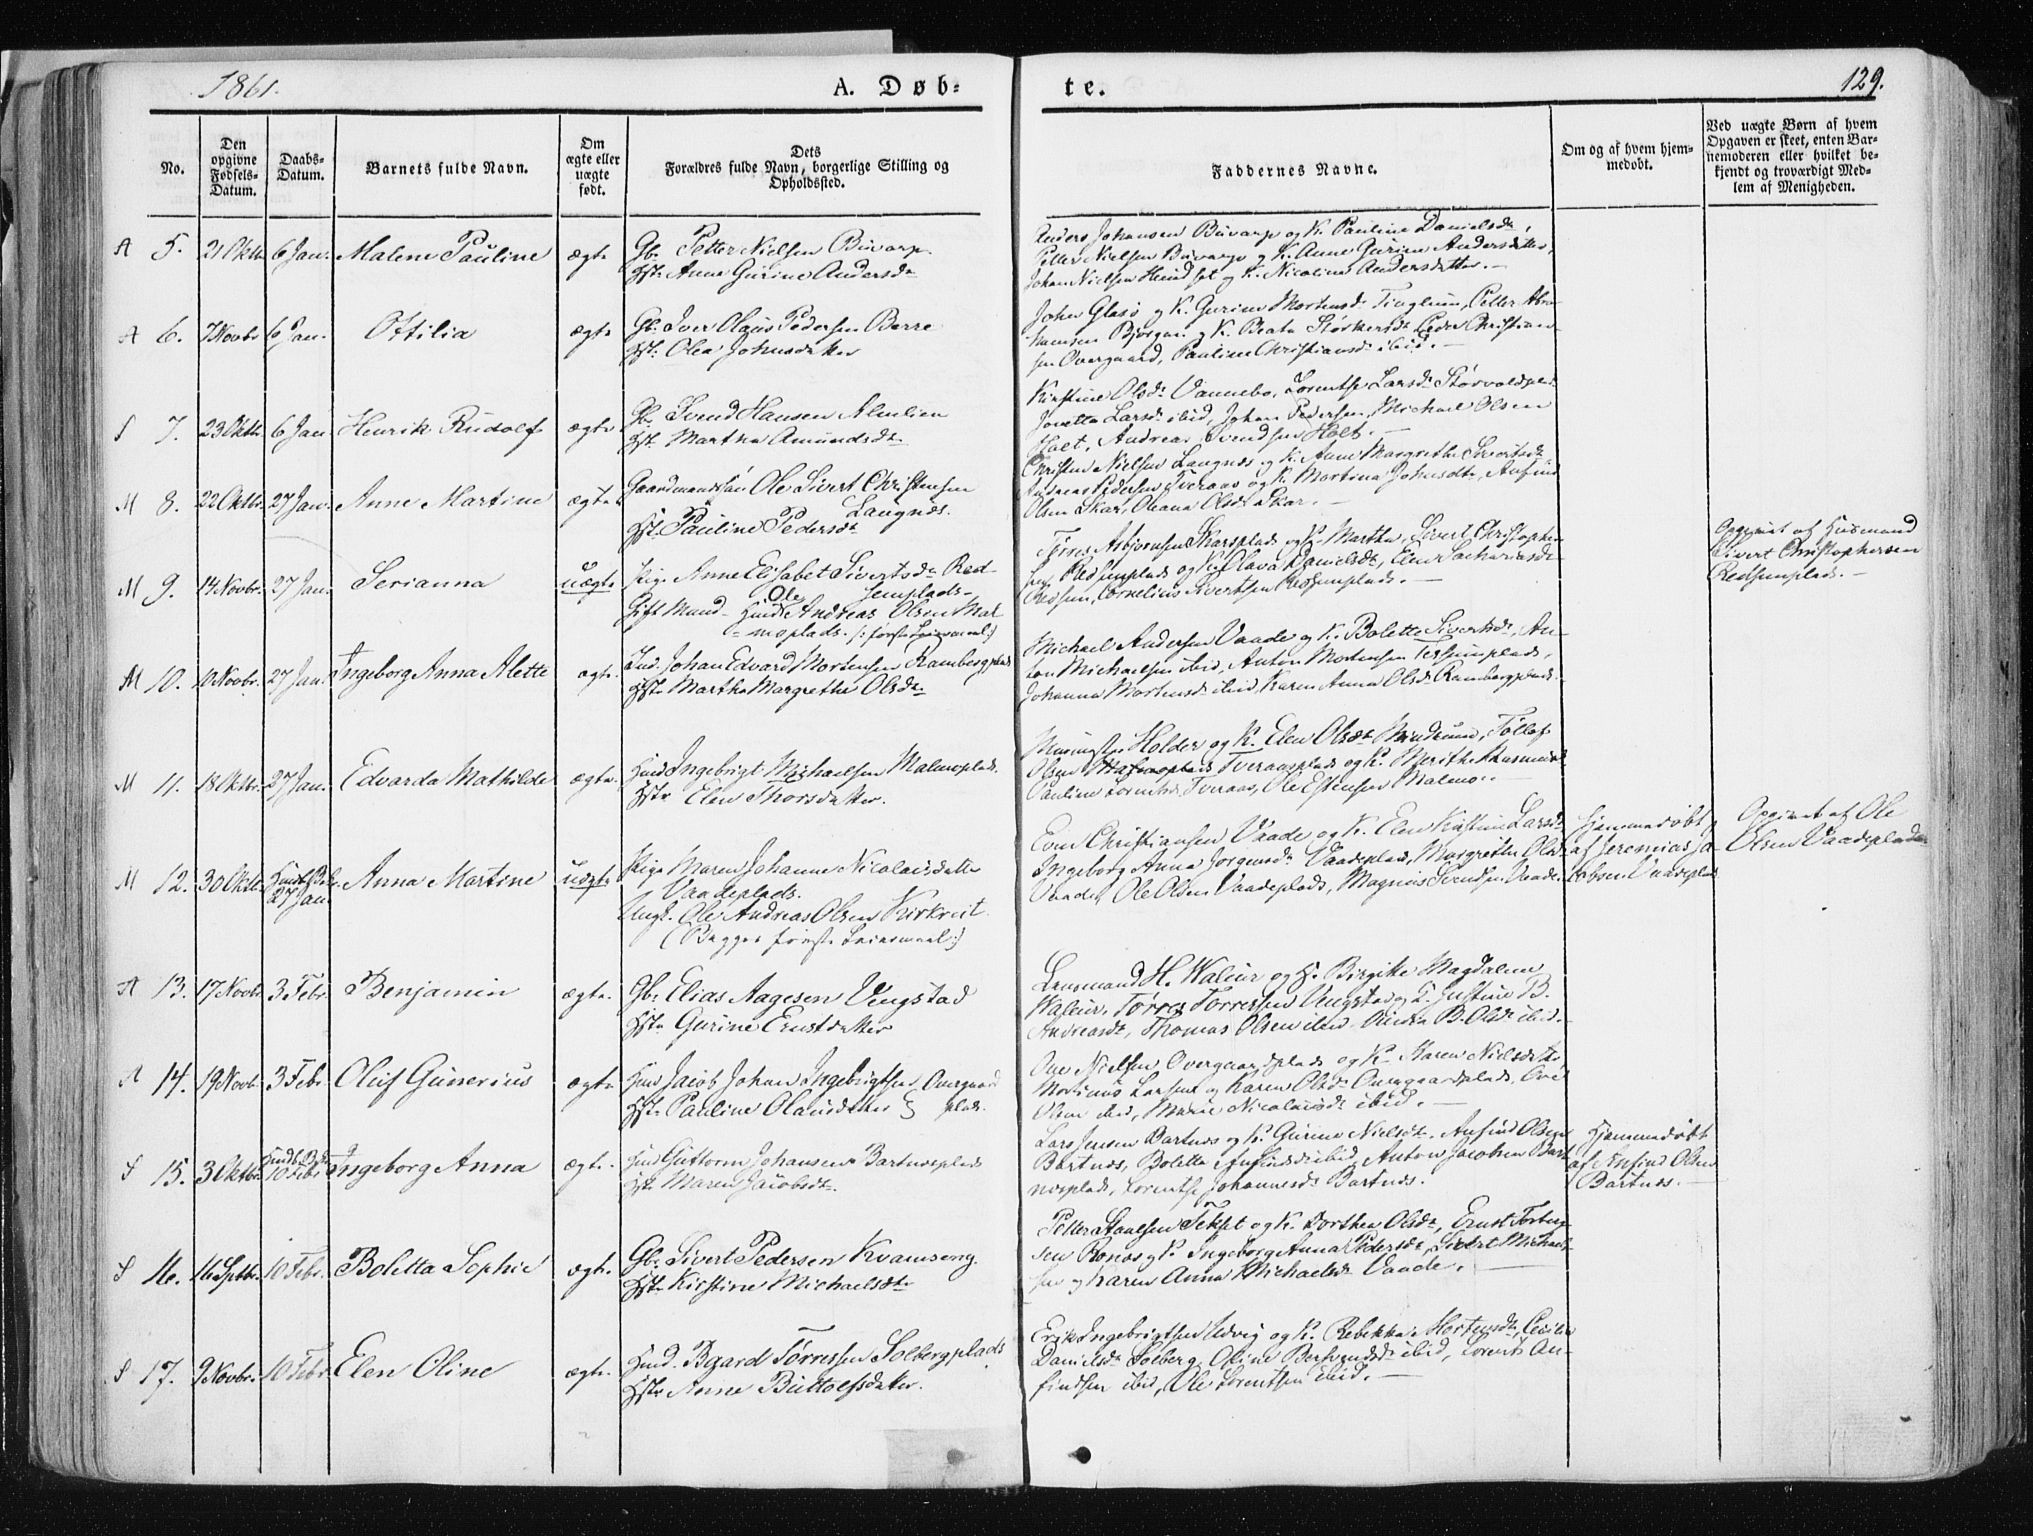 1861.
A. Døb-
te.
129.
No.
Den opgivne Fødsels-Datum.
Daabs-Datum.
Barnets fulde Navn.
Om ægte eller uægte født.
Dets Forældres fulde Navn, borgerlige Stilling og Opholdssted.
Faddernes Navne.
Om og af hvem hjemmedøbt.
Ved uægte Børn af hvem Opgaven er skeet, enten Barnemoderen eller hvilket bekjendt og troværdigt Medlem af Menigheden.
A 5. 21 Oktbr 6 Jan. Malene Pauline ægte
Gb. Petter Nielsen Buvarp
Hst. Anne Gurine Andersdr
Anders Johansen Buvarp og K. Pauline Danielsdr,
Petter Nielsen Buvarp og K. Anne Gurine Andersdatter,
Johan Nielsen og K. Nicoline Andersdatter.
A 6. 7 Novbr 6 Jan. Ottilia ægte
Gb. Iver Olaus Pedersen Berre
Hst. Olea Johnsdatter
John Glasø og K. Gurine Mortensdr, Petter Abra-
hamsen og K. Beata Størkersdr, Peder Christian-
sen Overgaard, Pauline Christiansdr ibid.
S 7. 23 Oktbr 6 Jan Henrik Rudolf ægte
Gb. Svend Hansen Almlien
Hst. Martha Amundsdr.
Kirstine Olsdr Vannebo, Lorentse Larsdr
Jonetta Larsdr ibid, Johan Pedersen, Michael Olsen
Holt, Andreas Svendsen Holt.
M 8. 22 Oktbr. 27 Jan. Anne Martine ægte
Gaardmandssøn Ole Sivert Christensen
Langnes.
Hst. Pauline Pedersdr
Christen Nielsen Langnes og K. Anne Margrethe Sivertsdr
Andreas Pedersen Tveraas og K. Martina Johnsdtr, Anfind
Olsen Skar, Oleana Olsdr Skar.
M 9. 14 Novbr. 27 Jan. Serianna uægte
Pige Anne Elisabet Sivertsdr Red-
semplads
Gift Mand Husmd Ole Andreas Olsen Mal-
moplads. (: første Leiermaal :)
Tørres Asbjørnsen Skarsplads og K. Martha, Sivert Christopher-
sen Redsemplads og K. Olava Danielsdr, Elen Zachariasdr
Redsem, Cornelius Sivertsen Redsemplads.
Opgivet af Husmand
Sivert Christophersen
Redsemplads.
M 10. 10 Novbr. 27 Jan. Ingeborg Anna Alette ægte
Ind. Johan Edvard Mortensen Rambergplads
Hst. Martha Margrethe Olsdr
Michael Andersen Vaade og K. Bolette Sivertsdr, An-
ton Michaelsen ibid, Anton Mortensen
Johanna Mortensdr ibid, Karen Anna Olsdr Rambergplads.
M 11. 18 Oktbr. 27 Jan. Edvarda Mathilde ægte
Husmd Ingebrigt Michaelsen Malmoplads.
Hstr Elen Thorsdatter.
Holder og K. Elen Olsdr, Tollef
Olsen Tveraasplads og K. Merithe Rasmusdr
Pauline Lorentsdr Tveraas, Ole Estensen Malmo.
M 12. 30 Oktbr. Hjmdbt 27 Jan. Anna Martine uægte
Pige Maren Johanne Nicolaisdatter
Vaadeplads.
Ungk. Ole Andreas Olsen Kirkreit
(Begges første Leiermaal :)
Even Christiansen Vaade og K. Elen Kirstine Larsdr
Ingeborg Anna Jørgensdr Vaadeplads, Margrethe Olsdr
Vaade, Ole Olsen Vaadeplads, Magnus Svendsen Vaade.
Hjemmedøbt
af Jeremias Ja-
cobsen Vaadeplads
Opgivet af Ole
Olsen Vaadeplads
A 13. 17 Novbr 3 Febr. Benjamin ægte.
Gb. Elias Aagesen Vengstad
Hstr Gurine Ernstdatter
Lensmand H. Waleur og H. Birgitte Magdalene
Waleur, Tørres Torressen Vengstad og K. Justine B.
Andreasdr, Thomas Olsen ibid. B. Olsdr ibid.
A 14. 19 Novb. 3 Febr. Oluf Gunerius ægte
Husmd Jacob Johan Ingebrigtsen Overgaard
Hstr Pauline Olausdatter plads.
Ove Nielsen Overgaardplads og K. Karen Nielsdatter
Morimus Larsen og Karen Olsdr Overgaardplads, Ove
Olsen ibid, Marie Nicolaisdr ibid.
S 15. 3 Oktbr. Hjmdbt 10 Febr Ingeborg Anna ægte.
Husmd Guttorm Johansen Bartnesplads
Hst. Maren Jacobsdr.
Lars Jensen Bartnes og K. Gurine Nielsdr. Anfind Olsen
Bartnes, Boletta Anfindsdr ibid, Anton Jacobsen Bart-
nesplads, Lorentse Johannesdr Bartnes.
Hjemmedøbt
af Anfind Olsen
Bartnes.
S 16. 16 Septbr. 10 Febr. Boletta Sophie ægte.
Gb. Sivert Pedersen Kvamseng
Hstr Kirstine Michaelsdtr
Petter Staalsen Tekset og K. Dorthea Olsdr, Ernst Torber-
sen Rones og K. Ingeborg Anna Pedersdr, Sivert Michael-
sen og Karen Anna Michaelsdr Vaade.
S 17. 9 Novbr. 10 Febr Elen Oline ægte.
Husmd. Baard Tørressen Solbergplads
Hstr Anne Buttolfsdatter.
Erik Ingebrigtsen Udvig og K. Rebekka Mortensdr, Cecilie
Danielsdr Solberg, Oline Bersvendsdr ibid, Lorents An-
findsen ibid, Ole Lorentsen ibid.